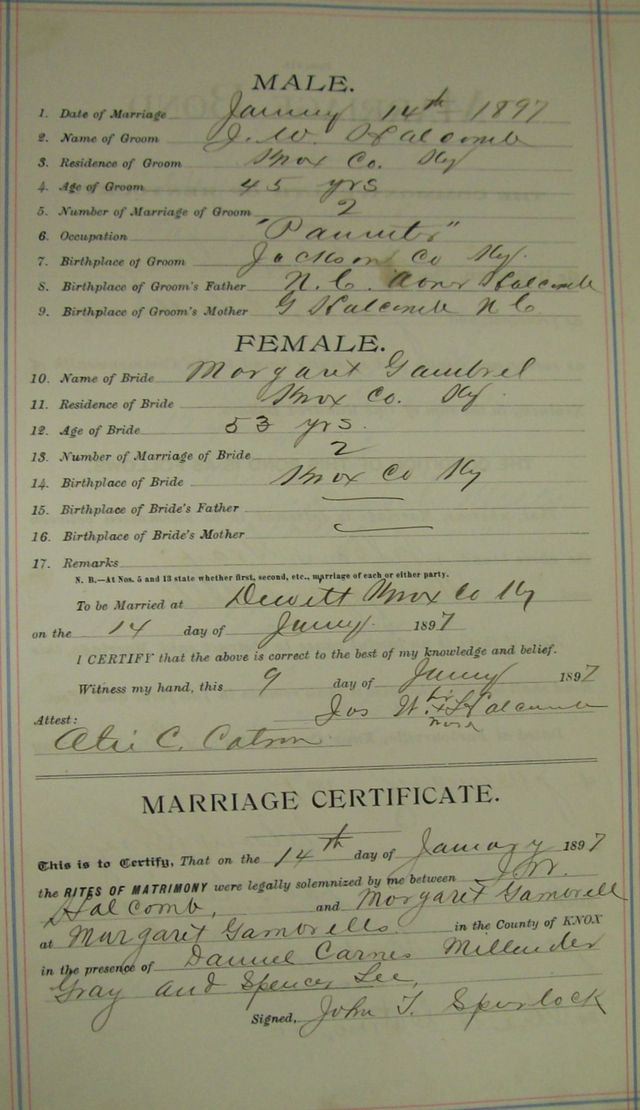 MALE.
1. Date of Marriage January 14th 1897
2. Name of Groom J. W. Halcomb
3. Residence of Groom Knox Co. Ky
4. Age of Groom 45 yrs
5. Number of Marriage of Groom 2
6. Occupation
7. Birthplace of Groom Jackson Co Ky.
8. Birthplace of Groom's Father N. C. Halcomb
9. Birthplace of Groom's Mother G Halcomb N C
FEMALE.
10. Name of Bride Margaret Gambrel
11. Residence of Bride Knox Co. Ky.
12. Age of Bride 53 yrs.
13. Number of Marriage of Bride 2
14. Birthplace of Bride Knox Co Ky
15. Birthplace of Bride's Father
16. Birthplace of Bride's Mother
17. Remarks
N. B.—At Nos. 5 and 13 state whether first, second, etc., marriage of each or either party.
To be Married at Dewitt Knox Co Ky
on the 14 day of Jany. 1897
I CERTIFY that the above is correct to the best of my knowledge and belief.
Witness my hand, this 9 day of Jany 1897
Jos W. x Halcomb
Attest:
C. Catron
MARRIAGE CERTIFICATE.
This is to Certify, That on the 14th day of January 1897
the RITES OF MATRIMONY were legally solemnized by me between J. W.
Halcomb, and Margaret Gambrell
at Margaret Gambrells in the County of KNOX
in the presence of Daniel Carnes Millender
Gray and Spencer Lee,
Signed, John T. Spurlock